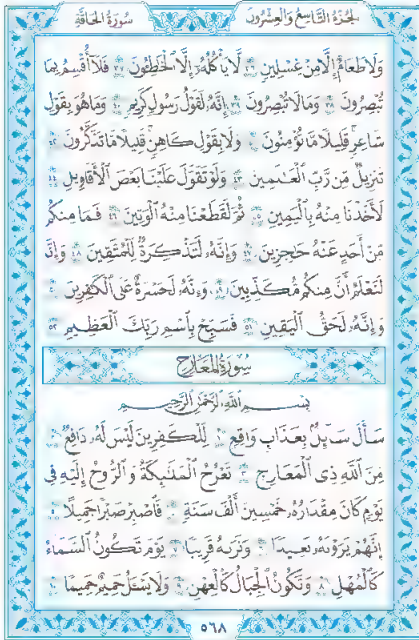 الجزء التاسع والعشرون
سورة الحاقة
ولا طعام إلا من غسلين ٣٦ لا يأكله إلا الخاطئون ٣٧ فلا أقسم بما
تبصرون ٣٨ وما لا تبصرون ٣٩ إنه لقول رسول كريم ٤٠ وما هو بقول
شاعر قليلا ما تؤمنون ٤١ ولا بقول كاهن قليلا ما تذكرون ٤٢
تنزيل من رب العالمين ٤٣ ولو تقول علينا بعض الأقاويل ٤٤
لأخذنا منه باليمين ٤٥ ثم لقطعنا منه الوتين ٤٦ فما منكم
من أحد عنه حاجزين ٤٧ وإنه لتذكرة للمتقين ٤٨ وإنا
لنعلم أن منكم مكذبين ٤٩ وإنه لحسرة على الكافرين ٥٠
وإنه لحق اليقين ٥١ فسبح باسم ربك العظيم ٥٢
سورة المعارج
بسم الله الرحمن الرحيم
سأل سائل بعذاب واقع ١ للكافرين ليس له دافع ٢
من الله ذي المعارج ٣ تعرج الملائكة والروح إليه في
يوم كان مقداره خمسين ألف سنة ٤ فاصبر صبرا جميلا ٥
إنهم يرونه بعيدا ٦ ونراه قريبا ٧ يوم تكون السماء
كالمهل ٨ وتكون الجبال كالعهن ٩ ولا يسئل حميم حميما ١٠
٥٦٨